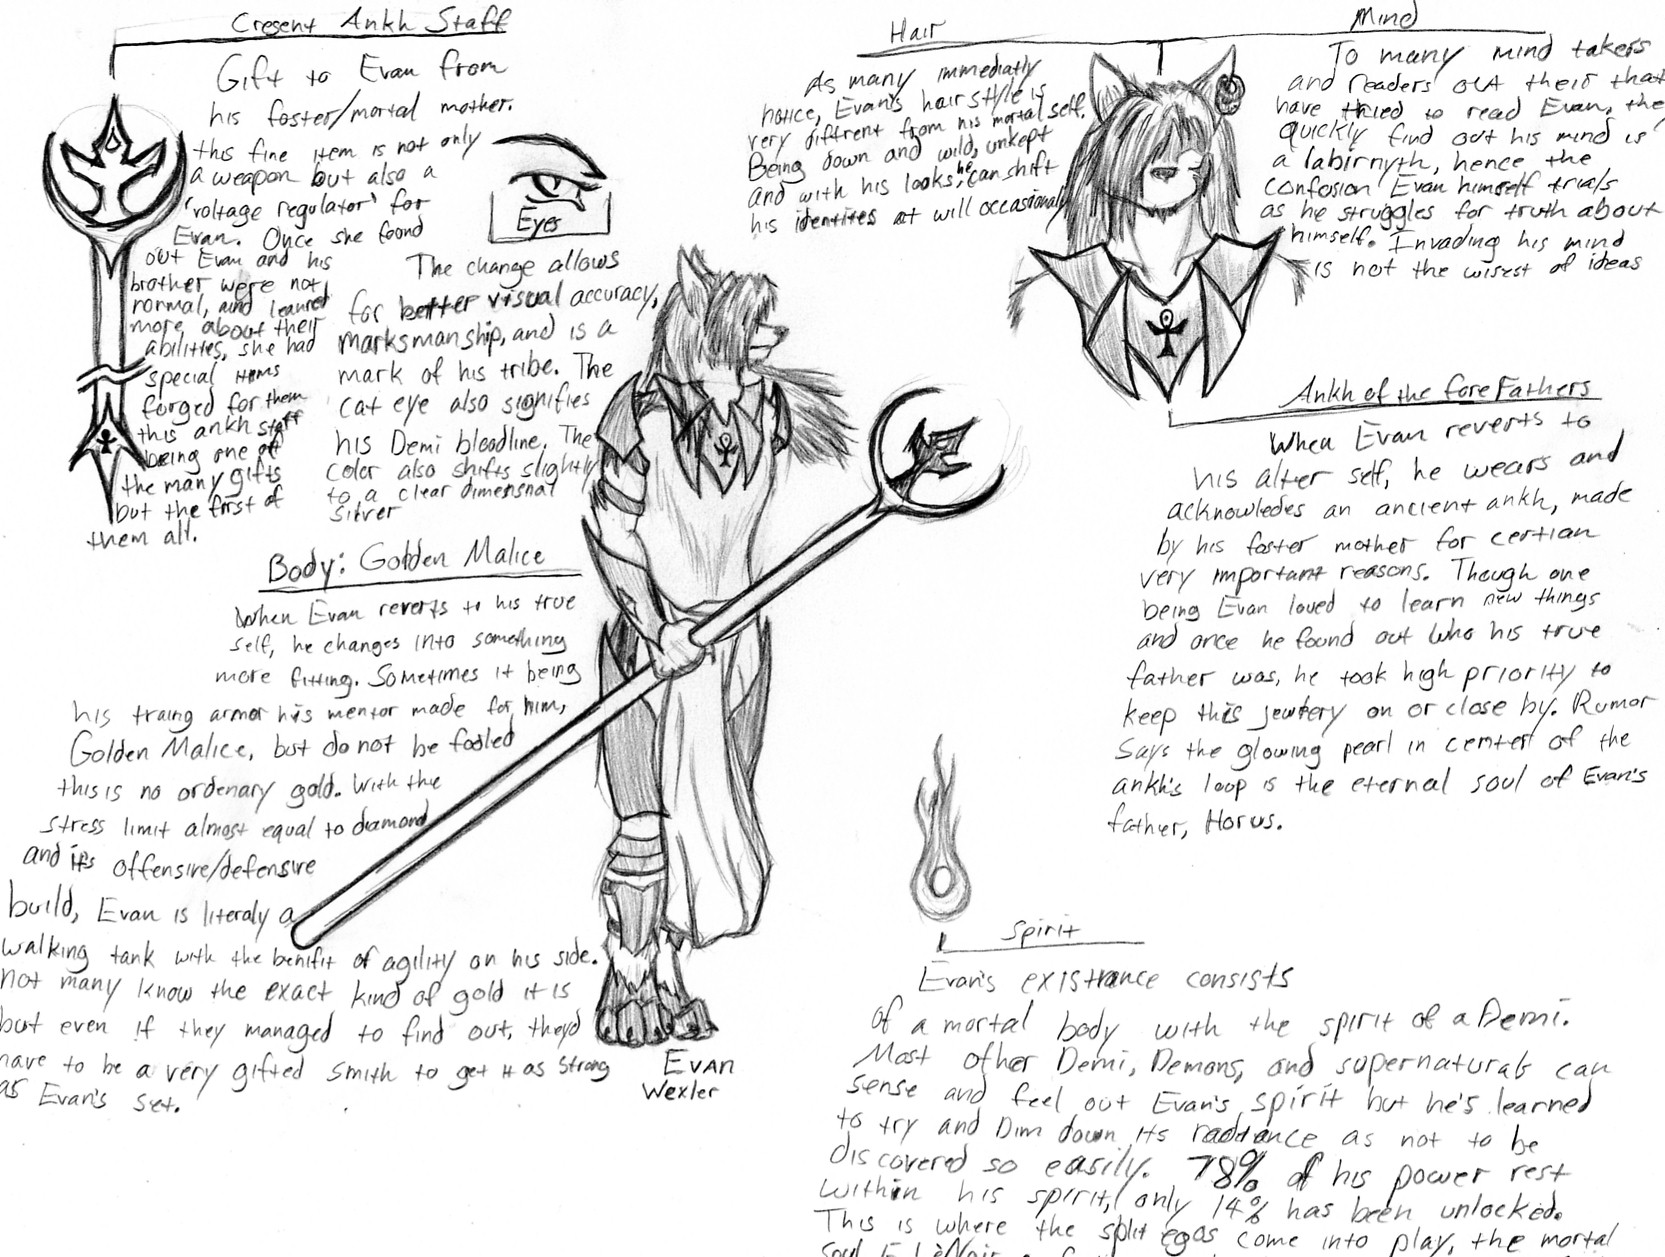 Cresent Ankh Staff
Gift to Evan from
his foster/mortal mother.
this fine item is not only
a weapon but also a
'voltage regulator' for
Evan. Once she found
out Evan and his
brother were not
normal, and learned
more about their
abilities, she had
special items
forged for them
this ankh staff
being one of
the many gifts
but the first of
them all.
Eyes
The change allows
for better visual accuracy,
marksmanship, and is a
mark of his tribe. The
cat eye also signifies
his Demi bloodline. The
color also shifts slightly
to a clear dimensnal
silver
Body: Golden Malice
When Evan reverts to his true
self, he changes into something
more fitting. Sometimes it being
his traing armor his mentor made for him,
Golden Malice, but do not be fooled
this is no ordenary gold. With the
stress limit almost equal to diamond
and its offensive/defensive
build, Evan is literaly a
walking tank with the benifit of agility on his side.
not many know the exact kind of gold it is
but even if they managed to find out, theyd
have to be a very gifted smith to get it as strong
as Evan's set.
Evan
Wexler
Hair
As many immediatly
notice, Evan's hairstyle is
very diffrent from his mortal self.
Being down and wild, unkept
and with his looks, he can shift
his identites at will occasionaly
Mind
To many mind takers
and readers out their that
have tried to read Evan, the
quickly find out his mind is
a labirnyth, hence the
confusion Evan himself trials
as he struggles for truth about
himself. Invading his mind
is not the wisest of ideas
Ankh of the foreFathers
When Evan reverts to
his alter self, he wears and
acknowledes an ancient ankh, made
by his foster mother for certian
very important reasons. Though one
being Evan loved to learn new things
and once he found out who his true
father was, he took high priority to
keep this jewlery on or close by. Rumor
says the glowing pearl in center of the
ankh's loop is the eternal soul of Evan's
father, Horus.
Spirit
Evan's existrance consists
of a mortal body with the spirit of a Demi.
Most other Demi, Demons, and supernaturals can
sense and feel out Evan's spirit but he's learned
to try and Dim down its radiance as not to be
discovered so easily. 78% of his power rest
within his spirit, only 14% has been unlocked.
This is where the split egos come into play, the mortal
Soul